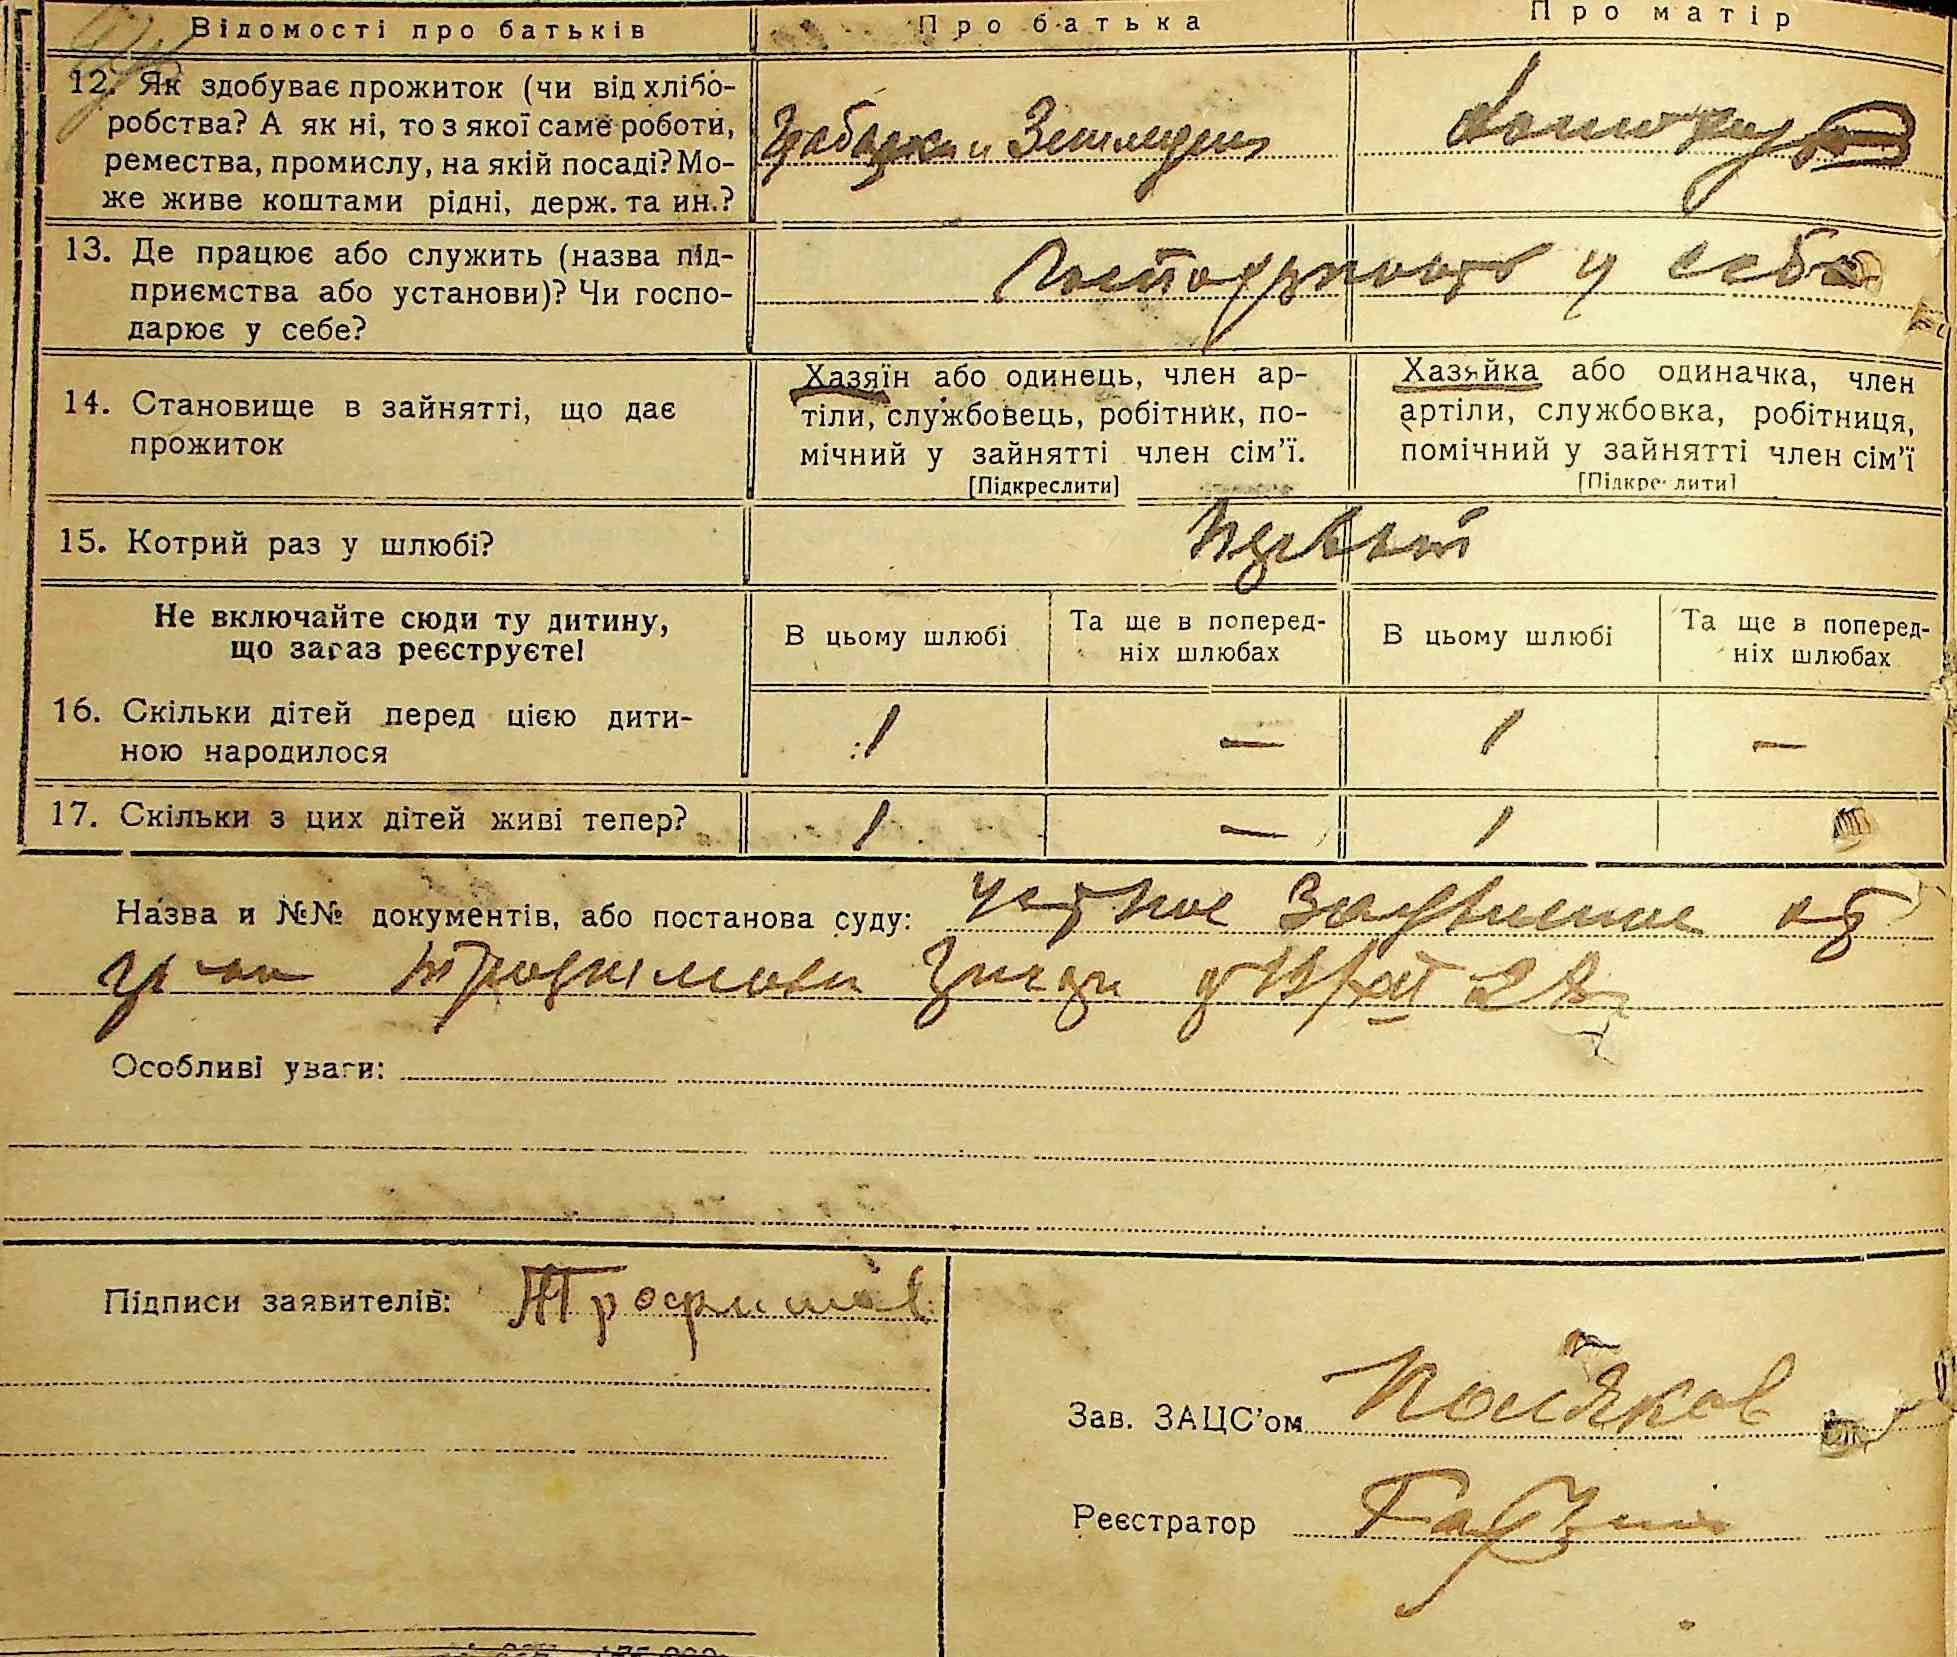 Відомості про батьків
Про батька
Про матір
12. Як здобуває прожиток (чи від хлібо-
робства? А як ні, то з якої саме роботи,
ремества, промислу, на якій посаді? Мо-
же живе коштами рідні, держ. та ин.?
13. Де працює або служить (назва під-
приємства або установи)? Чи госпо-
дарює у себе?
у себе
14. Становище в зайнятті, що дає
прожиток
Хазяїн або одинець, член ар-
тіли, службовець, робітник, по-
мічний у зайнятті член сім'ї.
[Підкреслити]
Хазяйка або одиначка, член
артіли, службовка, робітниця,
помічний у зайнятті член сім'ї
[Підкреслити]
15. Котрий раз у шлюбі?
Первый
Не включайте сюди ту дитину,
що зараз реєструєте!
В цьому шлюбі
Та ще в поперед-
ніх шлюбах
В цьому шлюбі
Та ще в поперед-
ніх шлюбах
16. Скільки дітей перед цією дити-
ною народилося
1 — 1 —
17. Скільки з цих дітей живі тепер?
1 — 1
Назва и №№ документів, або постанова суду: устное заявление от
гр-на Трофимова
Особливі уваги:
Підписи заявителів: Трофимов
Зав. ЗАЦС'ом Поляков
Реєстратор